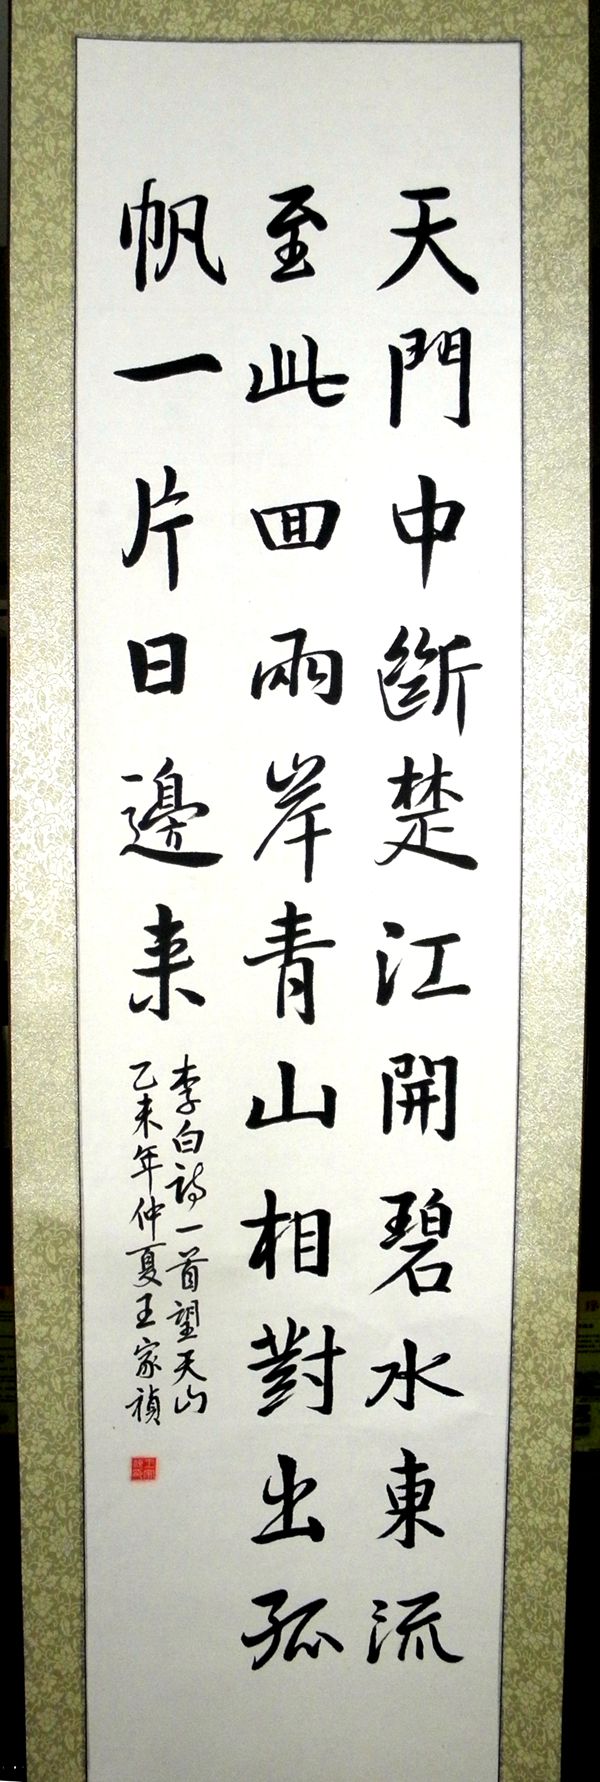 天門中斷楚江開碧水東流
至此回兩岸青山相對出孤
帆一片日邊来
李白詩一首望天山
乙未年仲夏王家禎